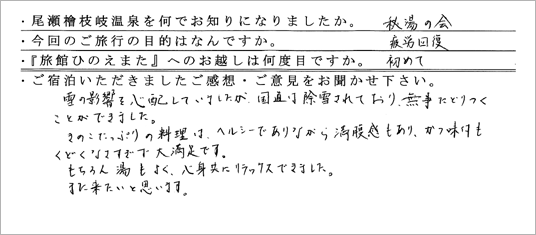 ・尾瀬檜枝岐温泉を何でお知りになりましたか。 秘湯の会
・今回のご旅行の目的はなんですか。 疲労回復
・『旅館ひのえまた』へのお越しは何度目ですか。 初めて
・ご宿泊いただきましたご感想・ご意見をお聞かせ下さい。
雪の影響を心配していましたが、国道は除雪されており、無事たどりつく
ことができました。
きのこたっぷりの料理は、ヘルシーでありながら満腹感もあり、かつ味付も
くどくなさすぎで大満足です。
もちろん湯もよく、心身共にリラックスできました。
また来たいと思います。